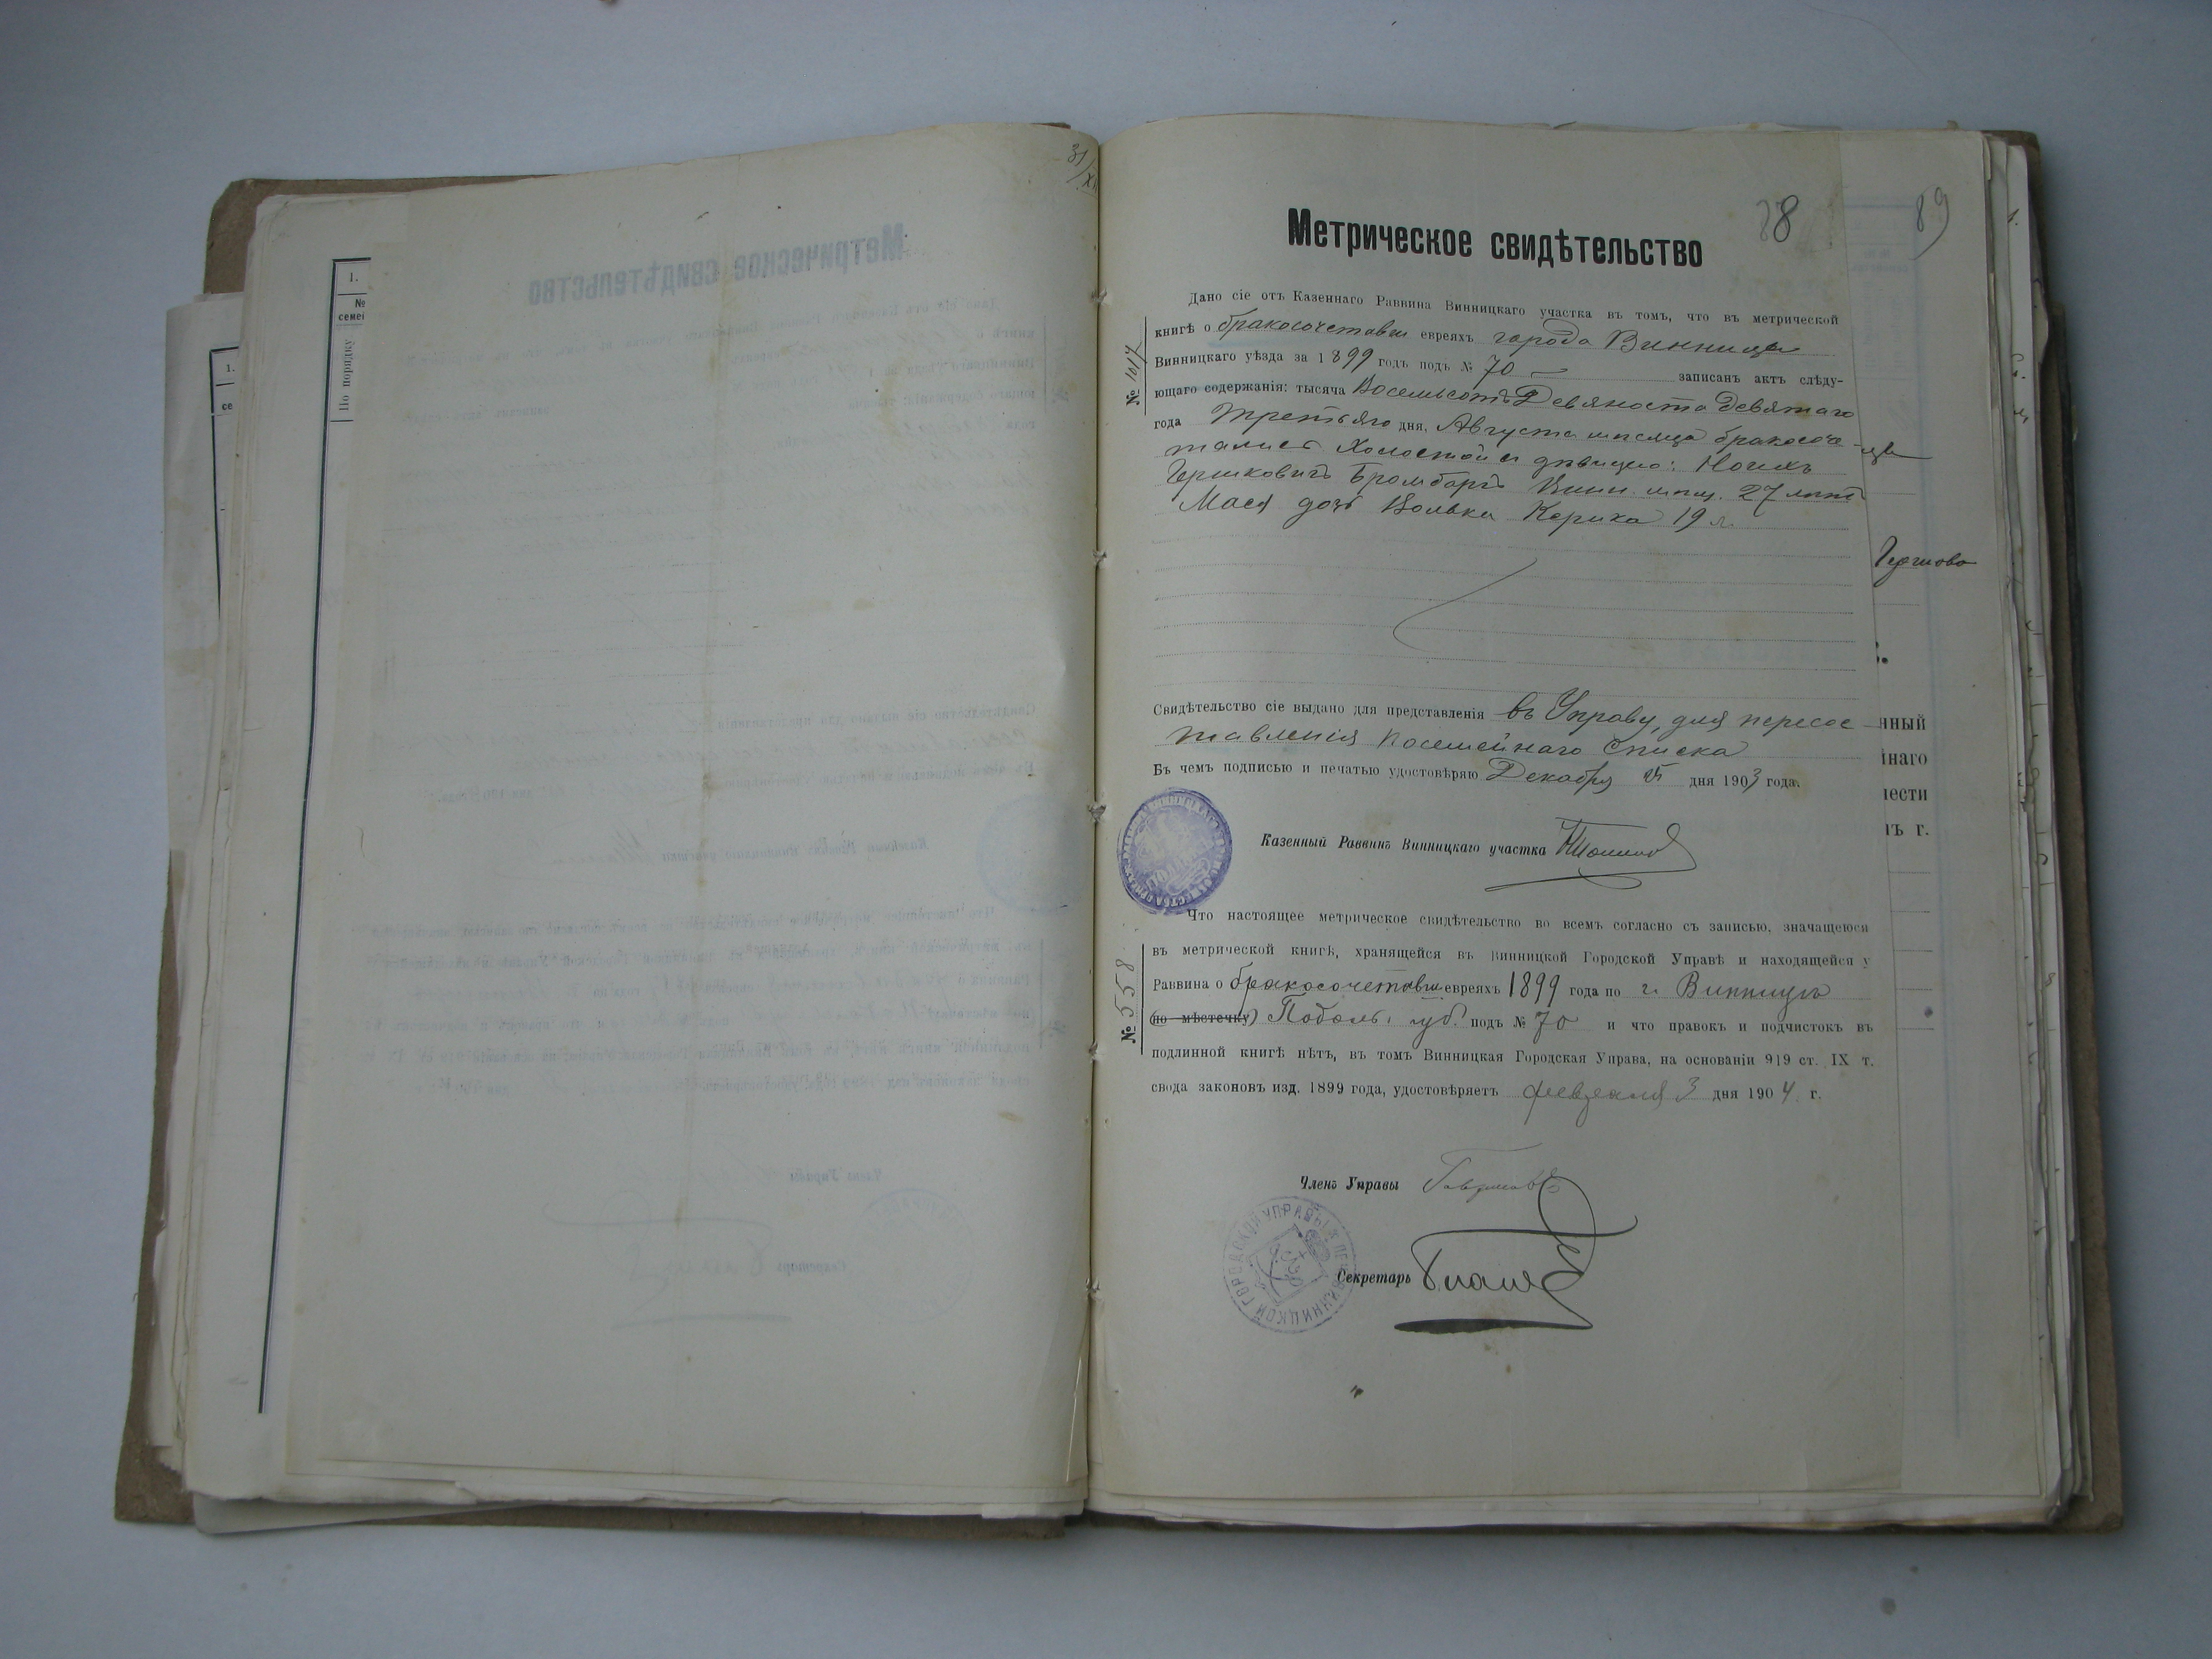 31/XII
1.
№
семеі
По порядку
1.
се
88
89
Метрическое свидѣтельство
Дано сіе отъ Казеннаго Раввина Винницкаго участка въ томъ, что въ метрической
книгѣ о бракосочетавш евреяхъ города Винницы
Винницкаго уѣзда за 1899 годъ подъ № 70 — записанъ актъ слѣду-
ющаго содержанія: тысяча Восемьсотъ Девяноста девятаго
года Третьяго дня, Августа мѣсяца бракосоче-
тались Холостой съ дѣвицею:
Гершковичъ Бромбергъ Винн. мѣщ. 27 лѣтъ
Мася дочь Волька Керика 19 л.
№ 1017
Гершово
Свидѣтельство сіе выдано для представленія въ Управу, для пересос
тавленія посемейнаго списка
Бъ чемъ подписью и печатью удостовѣряю Декабря дня 1903 года.
Казенный Раввинъ Винницкаго участка
Что настоящее метрическое свидѣтельство во всемъ согласно съ записью, значащеюся
въ метрической книгѣ, хранящейся въ Винницкой Городской Управѣ и находящейся у
Раввина о бракосочетавш евреяхъ 1899 года по г. Винницѣ
(по мѣстечку) Подоль. губ. подъ № 70 и что правокъ и подчистокъ въ
подлинной книгѣ нѣтъ, въ томъ Винницкая Городская Управа, на основаніи 919 ст. IX т.
свода законовъ изд. 1899 года, удостовѣряетъ февраля 3 дня 1904 г.
№ 558
Членъ Управы
Секретарь
ВИННИЦКОЙ ГОРОДСКОЙ УПРАВЫ
нный
йнаго
нести
ъ г.